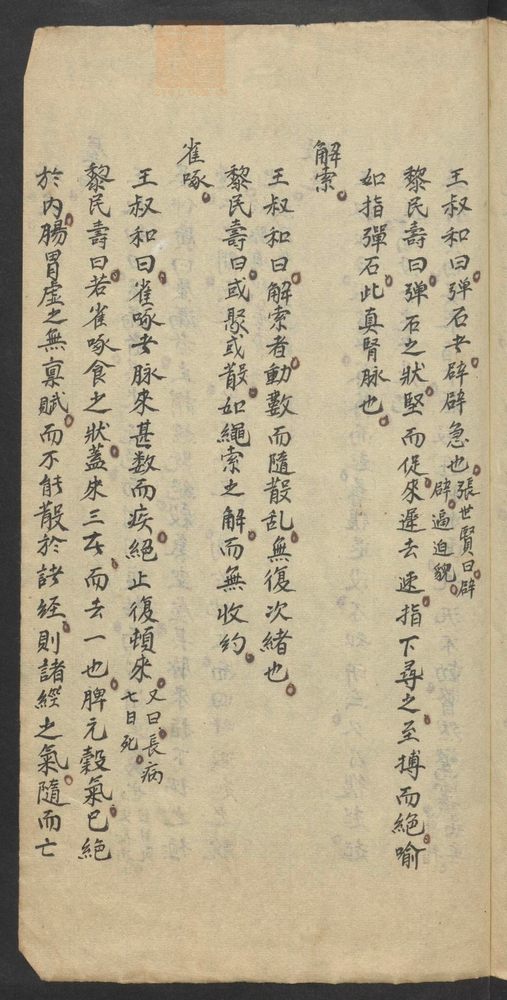 王叔和曰弹石者辟辟急也張世賢曰辟辟逼迫貌
黎民壽曰弹石之狀堅而促來遲去速指下尋之至搏而絕喻
如指彈石此真腎脉也
解索
王叔和曰解索者動數而隨散乱無復次緒也
黎民壽曰或聚或散如繩索之解而無收約
雀啄
王叔和曰雀啄者脉來甚数而疾絕止復頓來又曰長病七日死
黎民壽曰若雀啄食之狀蓋來三而去一也脾元穀氣已絕
於内腸胃虚之無稟賦而不能散於諸経則諸經之氣隨而亡